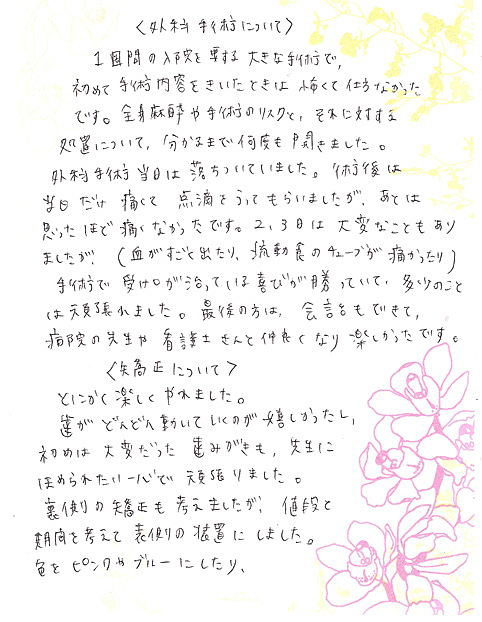 〈外科手術について〉
1週間の入院を要する大きな手術で、
初めて手術内容をきいたときは怖くて仕方なかった
です。全身麻酔や手術のリスクと、それに対する
処置について、分かるまで何度も聞きました。
外科手術当日は落ちついていました。術後は
当日だけ痛くて点滴をうってもらいましたが、あとは
思ったほど痛くなかったです。2、3日は大変なこともあり
ましたが、(血がすごと出たり、流動食のチューブが痛かったり)
手術で受け口が治っている喜びが勝っていて、多少のこと
は頑張れました。最後の方は、会話もできて、
病院の先生や看護士さんと仲良くなり楽しかったです。
〈矢喬正について〉
とにかく楽しくやれました。
歯がどんどん動いていくのが嬉しかったし、
初めは大変だった歯みがきも、先生に
ほめられたい一心で頑張りました。
裏側の矯正も考えましたが、値段と
期間を考えて表側の装置にしました。
色をピンクやブルーにしたり、